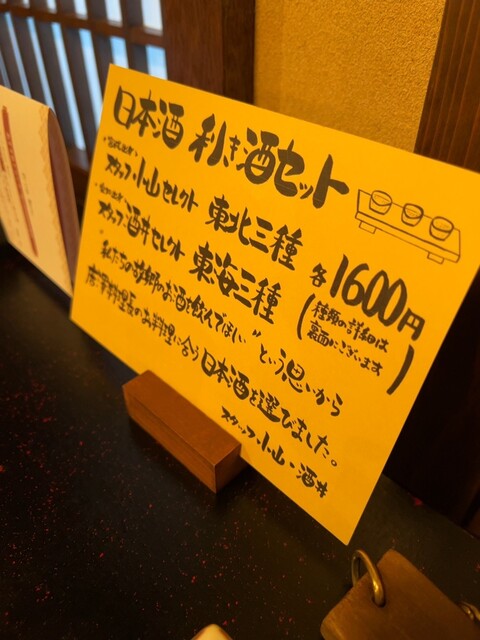 日本酒 利き酒セット
スタッフ・小山セレクト 東北三種
スタッフ・酒井セレクト 東海三種
各1600円
(種類の詳細は
裏面にございます)
"私たちの故郷のお酒を飲んでほしい"という思いから
料理長のお料理に合う日本酒を選びました。
スタッフ・小山・酒井